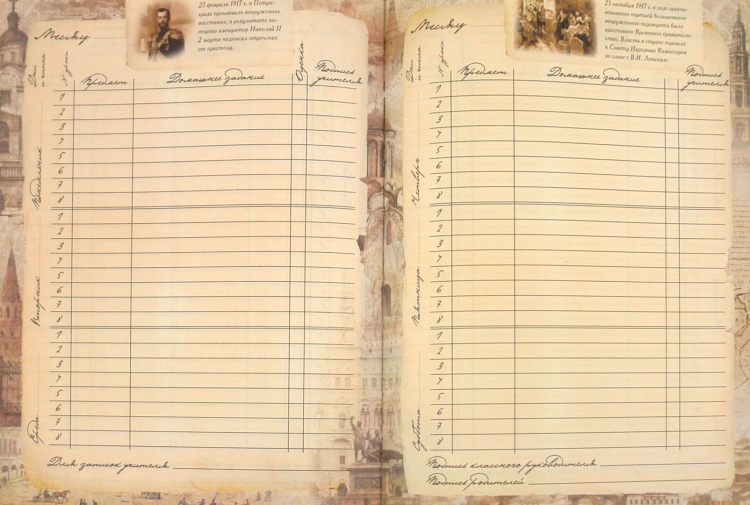 27 февраля 1917 г. в Петро-
граде произошло вооруженное
восстание, в результате ко-
торого император Николай II
2 марта подписал отречение
от престола.
Месяц
Дни и числа
№ урока
Предмет
Домашнее задание
Оценка
Подпись учителя
Понедельник
1
2
3
4
5
6
7
8
Вторник
1
2
3
4
5
6
7
8
Среда
1
2
3
4
5
6
7
8
Для записок учителя
25 октября 1917 г. в ходе органи-
зованного партией большевиков
вооруженного переворота было
арестовано Временное правитель-
ство. Власть в стране перешла
к Совету Народных Комиссаров
во главе с В.И. Лениным.
Месяц
Дни и числа
№ урока
Предмет
Домашнее задание
Подпись учителя
Четверг
1
2
3
4
5
6
7
8
Пятница
1
2
3
4
5
6
7
8
Суббота
1
2
3
4
5
6
7
8
Подпись классного руководителя
Подпись родителей